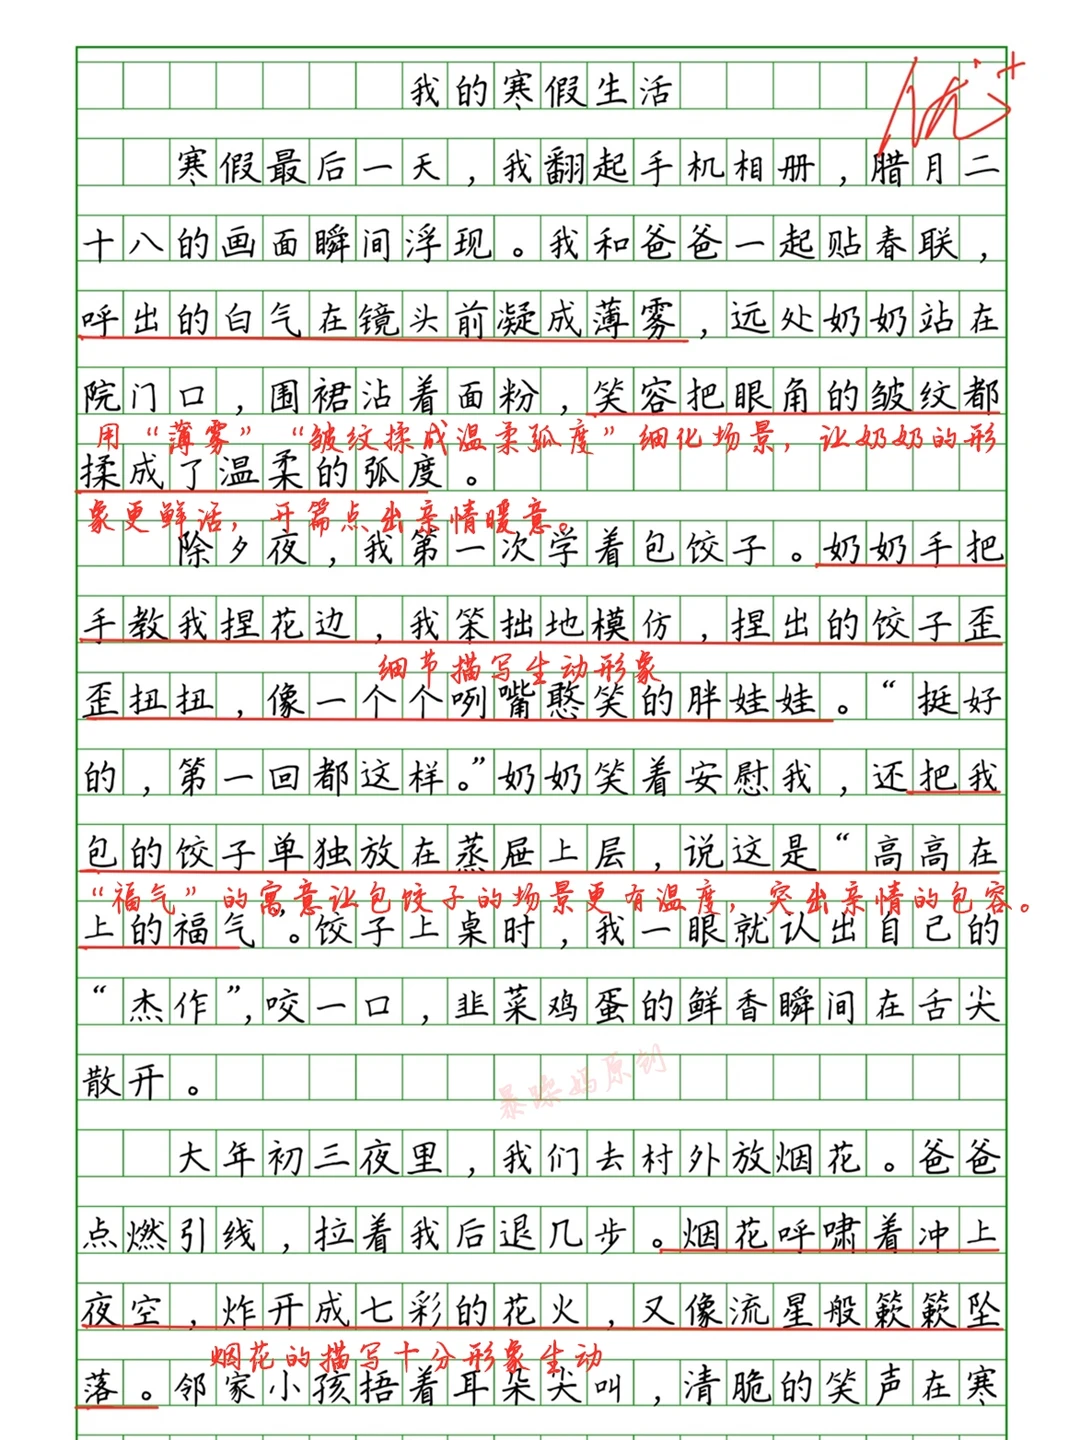 我的寒假生活
优+
寒假最后一天，我翻起手机相册，腊月二
十八的画面瞬间浮现。我和爸爸一起贴春联，
呼出的白气在镜头前凝成薄雾，远处奶奶站在
院门口，围裙沾着面粉，笑容把眼角的皱纹都
用“薄雾”“皱纹揉成温柔弧度”细化场景，让奶奶的形
揉成了温柔的弧度。
象更鲜活，开篇点出亲情暖意。
除夕夜，我第一次学着包饺子。奶奶手把
手教我捏花边，我笨拙地模仿，捏出的饺子歪
细节描写生动形象
歪扭扭，像一个个咧嘴憨笑的胖娃娃。“挺好
的，第一回都这样。”奶奶笑着安慰我，还把我
包的饺子单独放在蒸屉上层，说这是“高高在
“福气”的寓意让包饺子的场景更有温度，突出亲情的包容。
上的福气”。饺子上桌时，我一眼就认出自己的
“杰作”，咬一口，韭菜鸡蛋的鲜香瞬间在舌尖
散开。
暴躁妈原创
大年初三夜里，我们去村外放烟花。爸爸
点燃引线，拉着我后退几步。烟花呼啸着冲上
夜空，炸开成七彩的花火，又像流星般簌簌坠
烟花的描写十分形象生动
落。邻家小孩捂着耳朵尖叫，清脆的笑声在寒